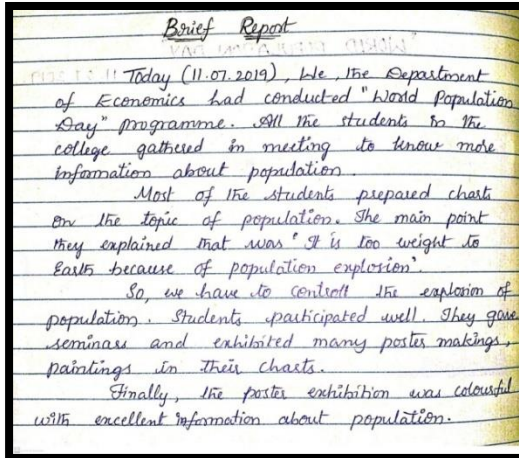 Brief Report
Today (11.07.2019), We, the Department
of Economics had conducted "World Population
Day" programme. All the students in the
college gathered in meeting to know more
information about population.
Most of the students prepared charts
on the topic of population. The main point
they explained that was "It is too weight to
Earth because of population explosion'.
So, we have to controll the explosion of
population. Students participated well. They gave
seminars and exhibited many poster makings,
paintings in their charts.
Finally, the poster exhibition was colourful
with excellent information about population.